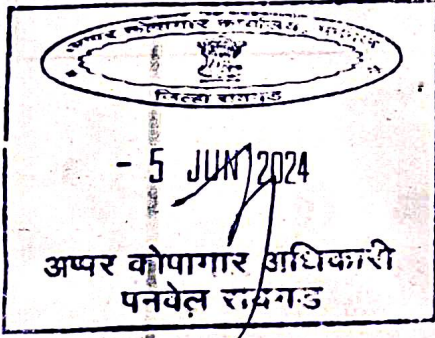 अप्पर कोषागार कार्यालय, पनवेल
जिल्हा रायगड
- 5 JUN 2024
अप्पर कोपागार अधिकारी
पनवेल रायगड